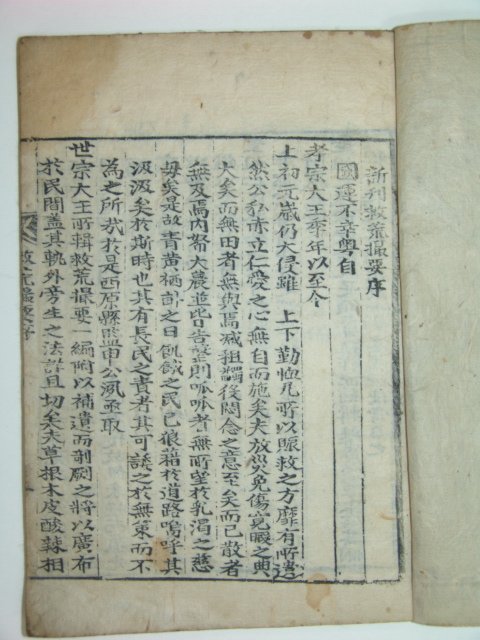 新刊救荒撮要序
國運不幸粤自
孝宗大王季年以至今
上初元歲仍大侵雖 上下勤恤凡所以賑救之方靡有所遺
然公私赤立仁愛之心無自而施矣夫放災免傷寬暇之典
大矣而無田者無與焉减租蠲後悶念之意至矣而已散者
無及焉內帑大農並皆告罄則呱呱者無所望於乳渴之慈
母矣是故青黃栖計之日飢餓之民已狼藉於道路嗚呼其
汲汲矣於斯時也其有長民之責者其可諉之於無策而不
為之所哉於是西原縣監申公洬亟取
世宗大王所輯救荒撮要一編附以補遺而剞劂之將以廣布
於民間盖其軌外旁生之法詳且切矣夫草根木皮酸辣相